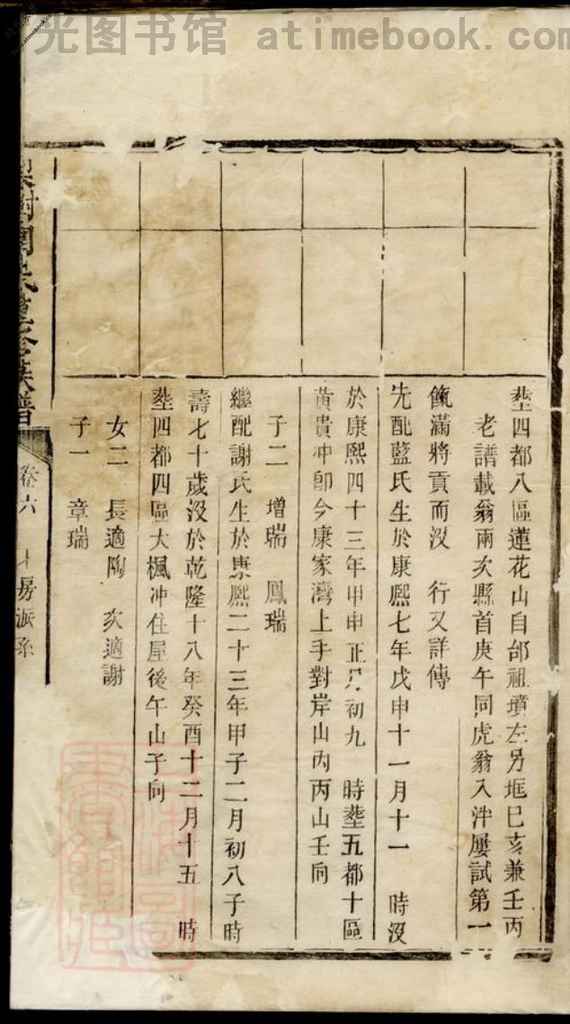 光图书馆 atimebook.com
塟四都八區蓮花山自邰祖墳左另堩巳亥兼壬丙
老譜載翁兩次縣首庚午同虎翁入泮屢試第一
餼滿將貢而沒 行又詳傳
先配藍氏生於康熙七年戊申十一月十一 時沒
於康熙四十三年甲申正月初九 時塟五都十區
黃貴冲卽今康家灣上手對岸山內丙山壬向
子二 增瑞 鳳瑞
繼配謝氏生於康熙二十三年甲子二月初八子時
壽七十歲沒於乾隆十八年癸酉十二月十五 時
塟四都四區大楓冲住屋後午山子向
女二 長適陶 次適謝
子一 章瑞
氏 族譜
卷六 房派系